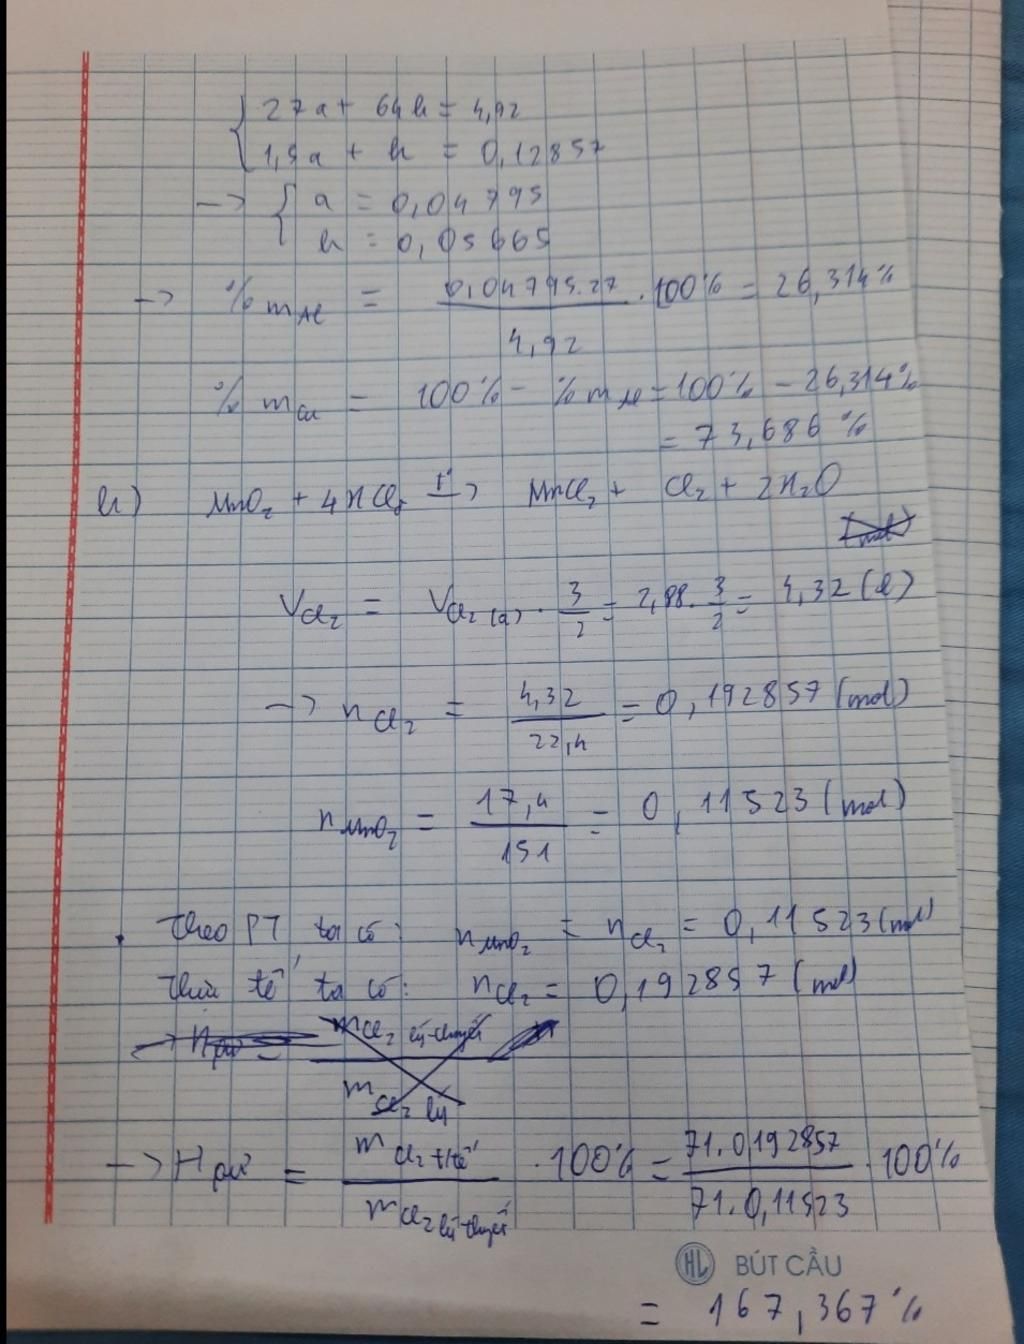 27a + 64b = 4,92
1,5a + b = 0,12857
→ a = 0,04795
b = 0,05665
→ % mAl = 0,04795.27 / 4,92 . 100% = 26,314%
% mCu = 100% - % mAl = 100% - 26,314%
= 73,686%
b) MnO₂ + 4HCl t° → MnCl₂ + Cl₂ + 2H₂O
(mol)
VCl₂ = VCl₂(a) . 3/2 = 2,88 . 3/2 = 4,32 (l)
→ nCl₂ = 4,32 / 22,4 = 0,192857 (mol)
nMnO₂ = 17,4 / 151 = 0,11523 (mol)
. Theo PT ta có: nMnO₂ = nCl₂ = 0,11523 (mol)
Thực tế ta có: nCl₂ = 0,192857 (mol)
→ Hpư = mCl₂ lý thuyết / mCl₂ lý
→ Hpư = mCl₂ t/tế / mCl₂ lý thuyết . 100% = 71.0,192857 / 71.0,11523 . 100%
HL BÚT CẦU
= 167,367%